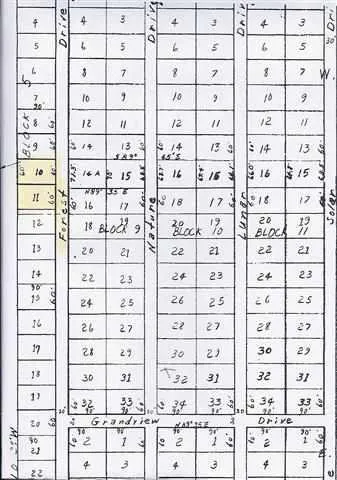 Drive Drive Drive
4 4 3 4 3 4 3
5 6 5 6 5 6 5
6 8 7 8 7 8 7 W.
7 10 9 10 9 10 9
8 12 11 12 11 12 11
9 14 13 14 13 14 13
10 16A 15 16 15 16 15
N89° 35 E
11 16 17 18 17 18 17
12 18 19 20 19 20 19
BLOCK 9 BLOCK 10 BLOCK 11
13 20 21 22 21 22 21
14 22 23 24 23 24 23
15 24 25 26 25 26 25
16 26 27 28 27 28 27
28 29 30 29 30 29
18 30 31 32 31 32 31
32 33 34 33 34 33
60' 90' 90' 60' 60' 90' 90' 60' 60' 90' 90' 60'
20 Grandview Drive
90' 90' 90' 90' 90' 90' 90'
21 2 1 2 1 2 1 E.
22 4 3 4 3 4 3
BLOCK 5
Forest
Nature
Lunar
Solar